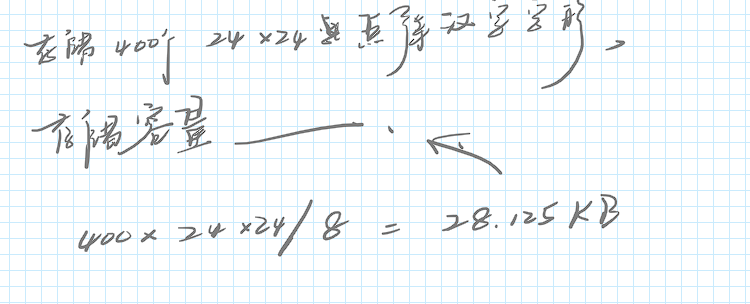 存储400个 24×24点阵汉字字形，
存储容量 ———.
400×24×24/8 = 28.125KB